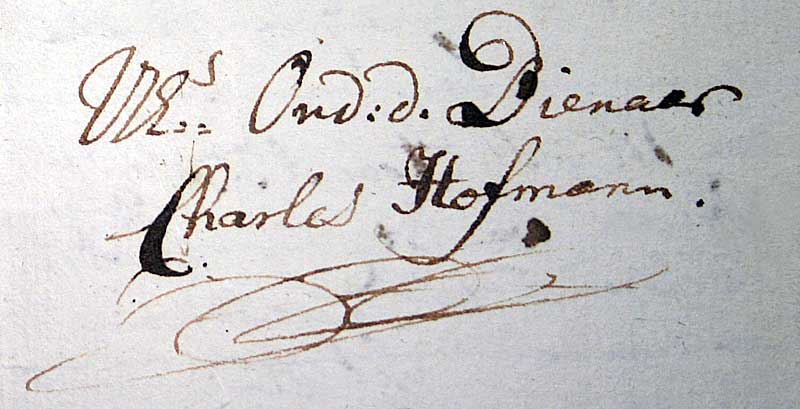 UEs: Ond: d. Dienaer
Charles Hofmann.